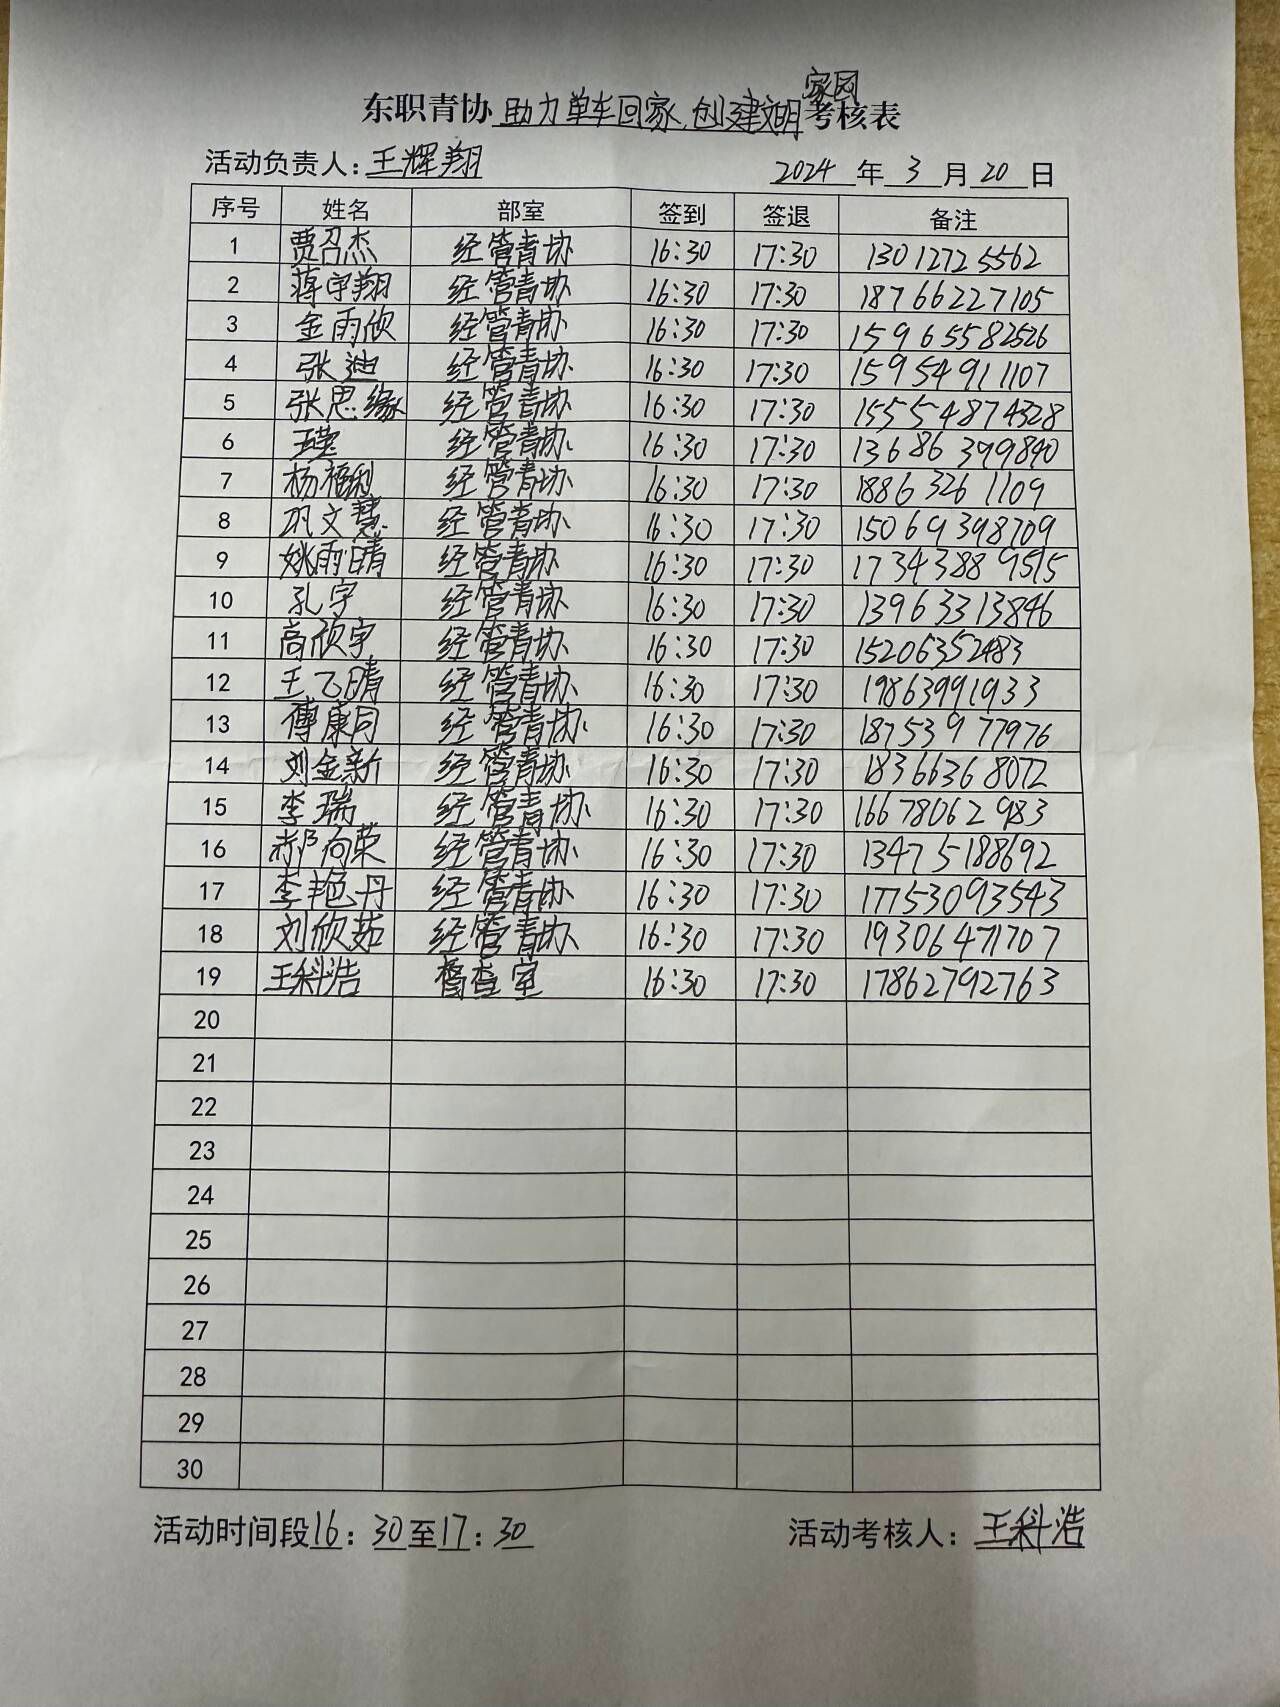 家园
东职青协 助力单车回家,创建文明 考核表
活动负责人：王辉翔 2024 年 3 月 20 日
序号 姓名 部室 签到 签退 备注
1 贾召杰 经管青协 16:30 17:30 13012725562
2 蒋宇翔 经管青协 16:30 17:30 18766227105
3 金雨欣 经管青协 16:30 17:30 15965582526
4 张迪 经管青协 16:30 17:30 15954911107
5 张思缘 经管青协 16:30 17:30 15554874328
6 王瑾 经管青协 16:30 17:30 13686399890
7 杨福利 经管青协 16:30 17:30 18863261109
8 巩文慧 经管青协 16:30 17:30 15069398709
9 姚雨晴 经管青协 16:30 17:30 17343889515
10 孔宇 经管青协 16:30 17:30 13963313846
11 高欣宇 经管青协 16:30 17:30 15206352483
12 王飞晴 经管青协 16:30 17:30 19863991933
13 傅康同 经管青协 16:30 17:30 18753977976
14 刘金新 经管青协 16:30 17:30 18366368072
15 李瑞 经管青协 16:30 17:30 16678062983
16 郝向荣 经管青协 16:30 17:30 13475188692
17 李艳丹 经管青协 16:30 17:30 17753093543
18 刘欣茹 经管青协 16:30 17:30 19306471707
19 王科浩 查室 16:30 17:30 17862792763
20
21
22
23
24
25
26
27
28
29
30
活动时间段16：30至17：30 活动考核人：王科浩